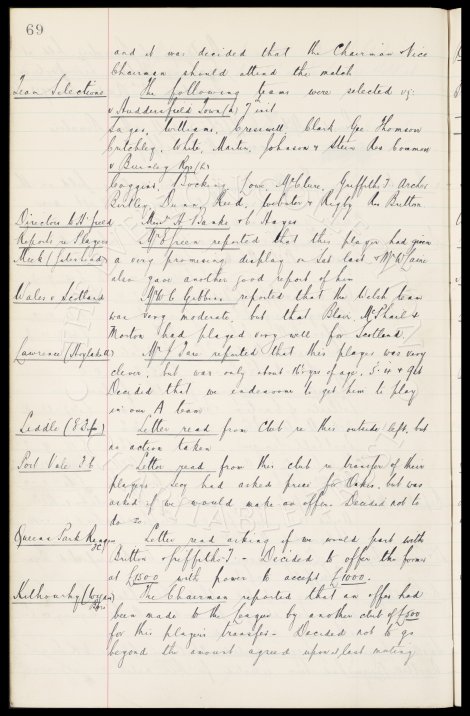 69
and it was decided that the Chairman & Vice
Chairman should attend the match
Team Selections The following teams were selected viz:
v Huddersfield Town (a) 7 inst
Sagar, Williams, Cresswell, Clark Gee Thomson
Critchley, White, Martin, Johnson & Stein Res Common
v Burnley Res (h)
Coggins, Bocking, Lowe, McClure, Griffiths T. Archer
Birtley, Dunn, Reed, Webster & Rigby Res Britton
Directors to H'field Messrs H Banks & E Hayes
Reports re Players Mr Green reported that this player had given
Meek (Gateshead) a very promising display on Sat last & Mr McClaire
also gave another good report of him
Wales v Scotland Mr W C Gibbins reported that the Welsh team
was very moderate, but that Blair, McPhail &
Morton had played very well for Scotland.
Lawrence (Hoylake A) Mr J Saw reported that this player was very
clever, but was only about yrs of age, 5'4 & 9st
Decided that we endeavour to get him to play
in our A team
Liddle (E Fife) Letter read from Club re this outside left, but
no action taken
Port Vale F C Letter read from this club re transfer of their
players. Secy had asked price for Oakes, but was
asked if we would make an offer. Decided not to
do so
Queens Park Rangers FC Letter read asking if we would part with
Britton - Griffiths T. - Decided to offer the former
at £1500 with power to accept £1000.
(Wigan Boro) The Chairman reported that an offer had
been made to the League by another club of £500
for this players transfer - Decided not to go
beyond the amount agreed upon at last meeting